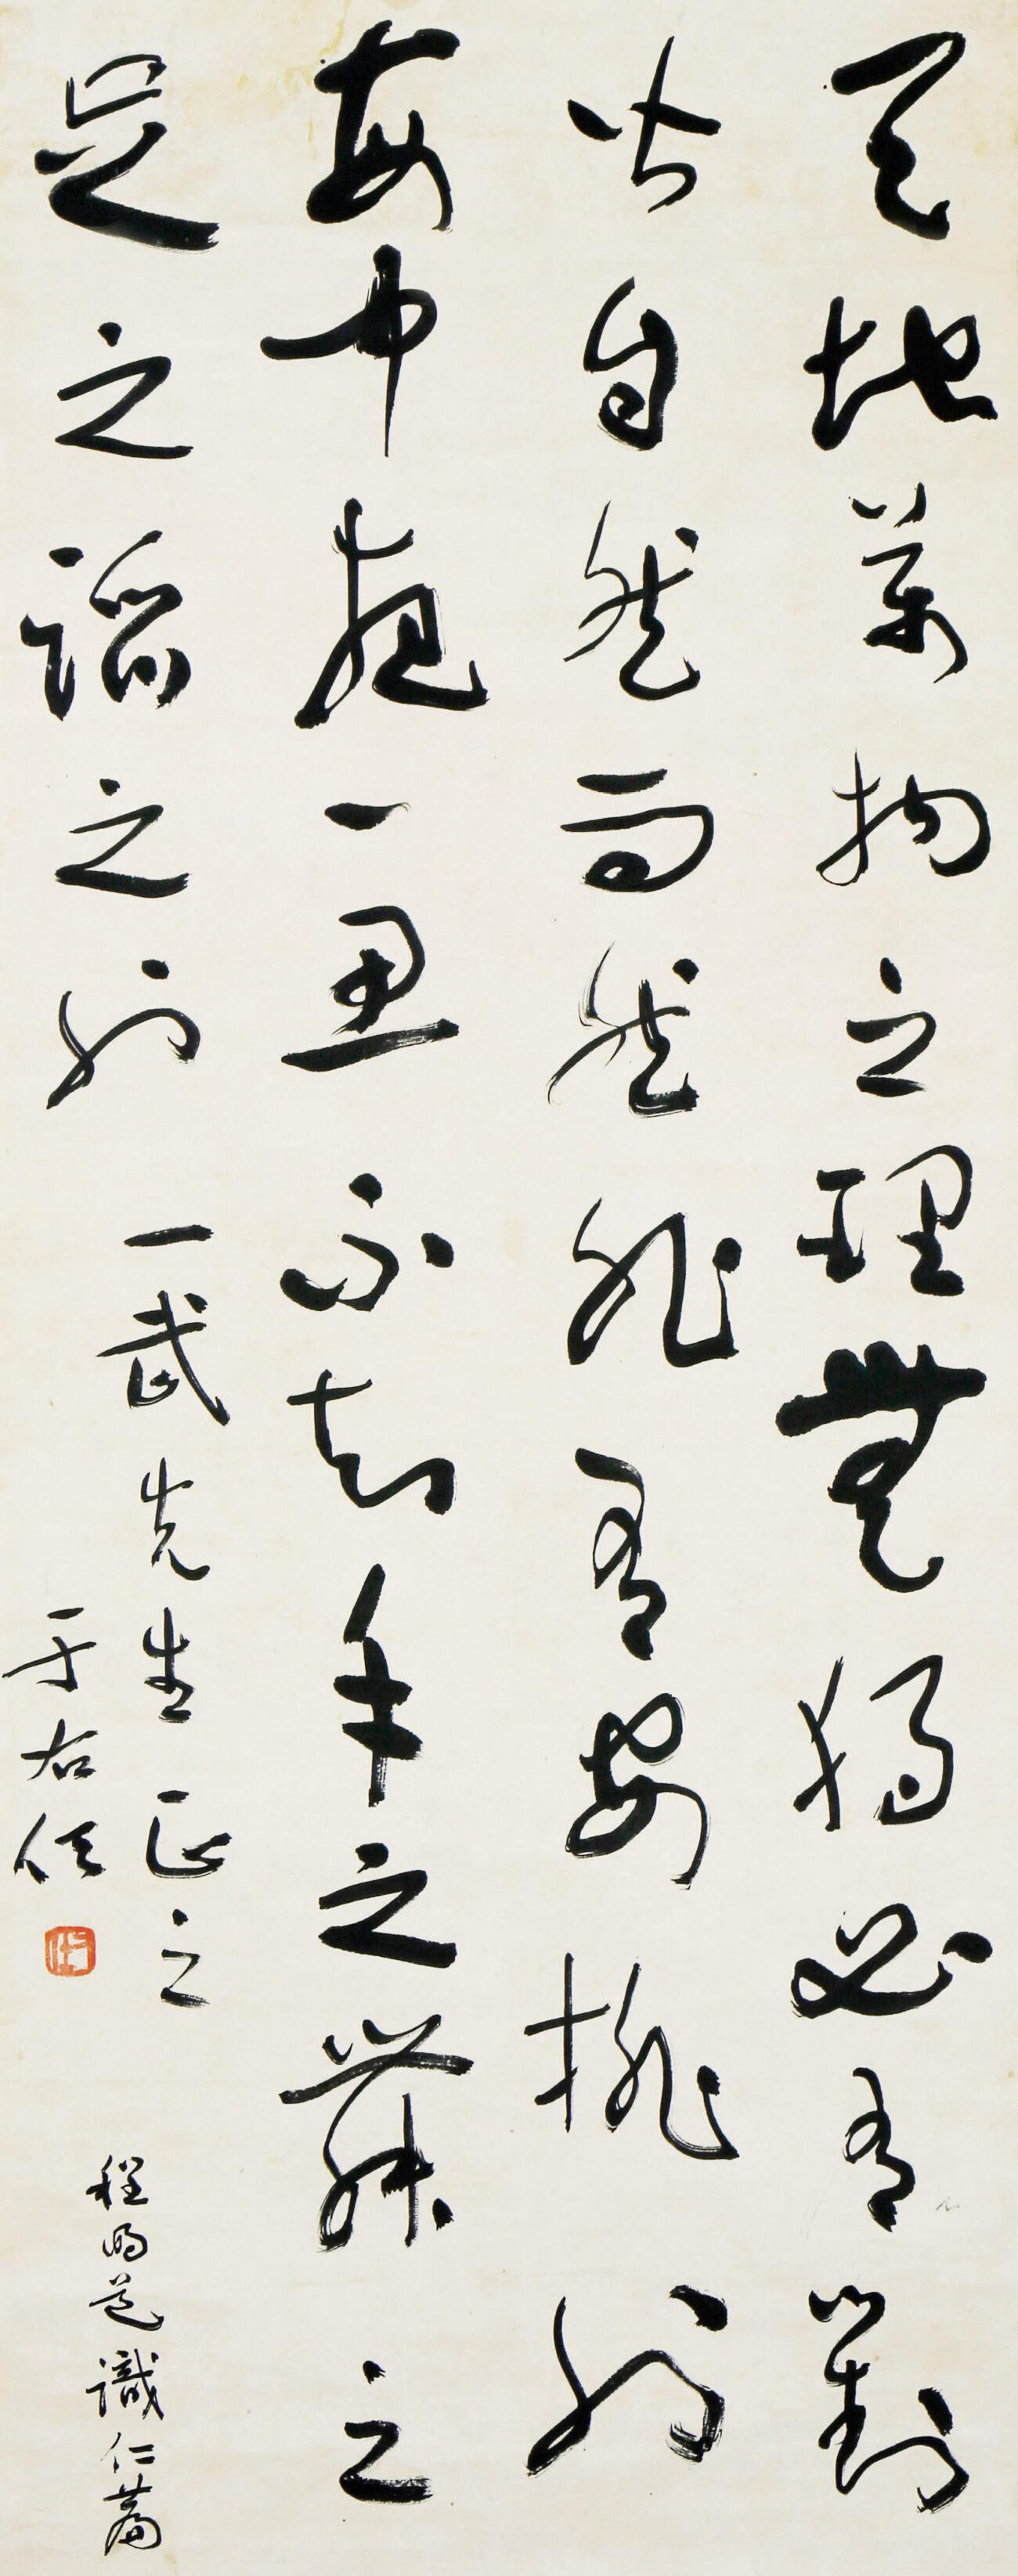 天地萬物之理無獨必有對
皆自然而然非有安排也
每中夜一思不知手之舞之
足之蹈之也
一武先生正之
于右任
程明道識仁篇